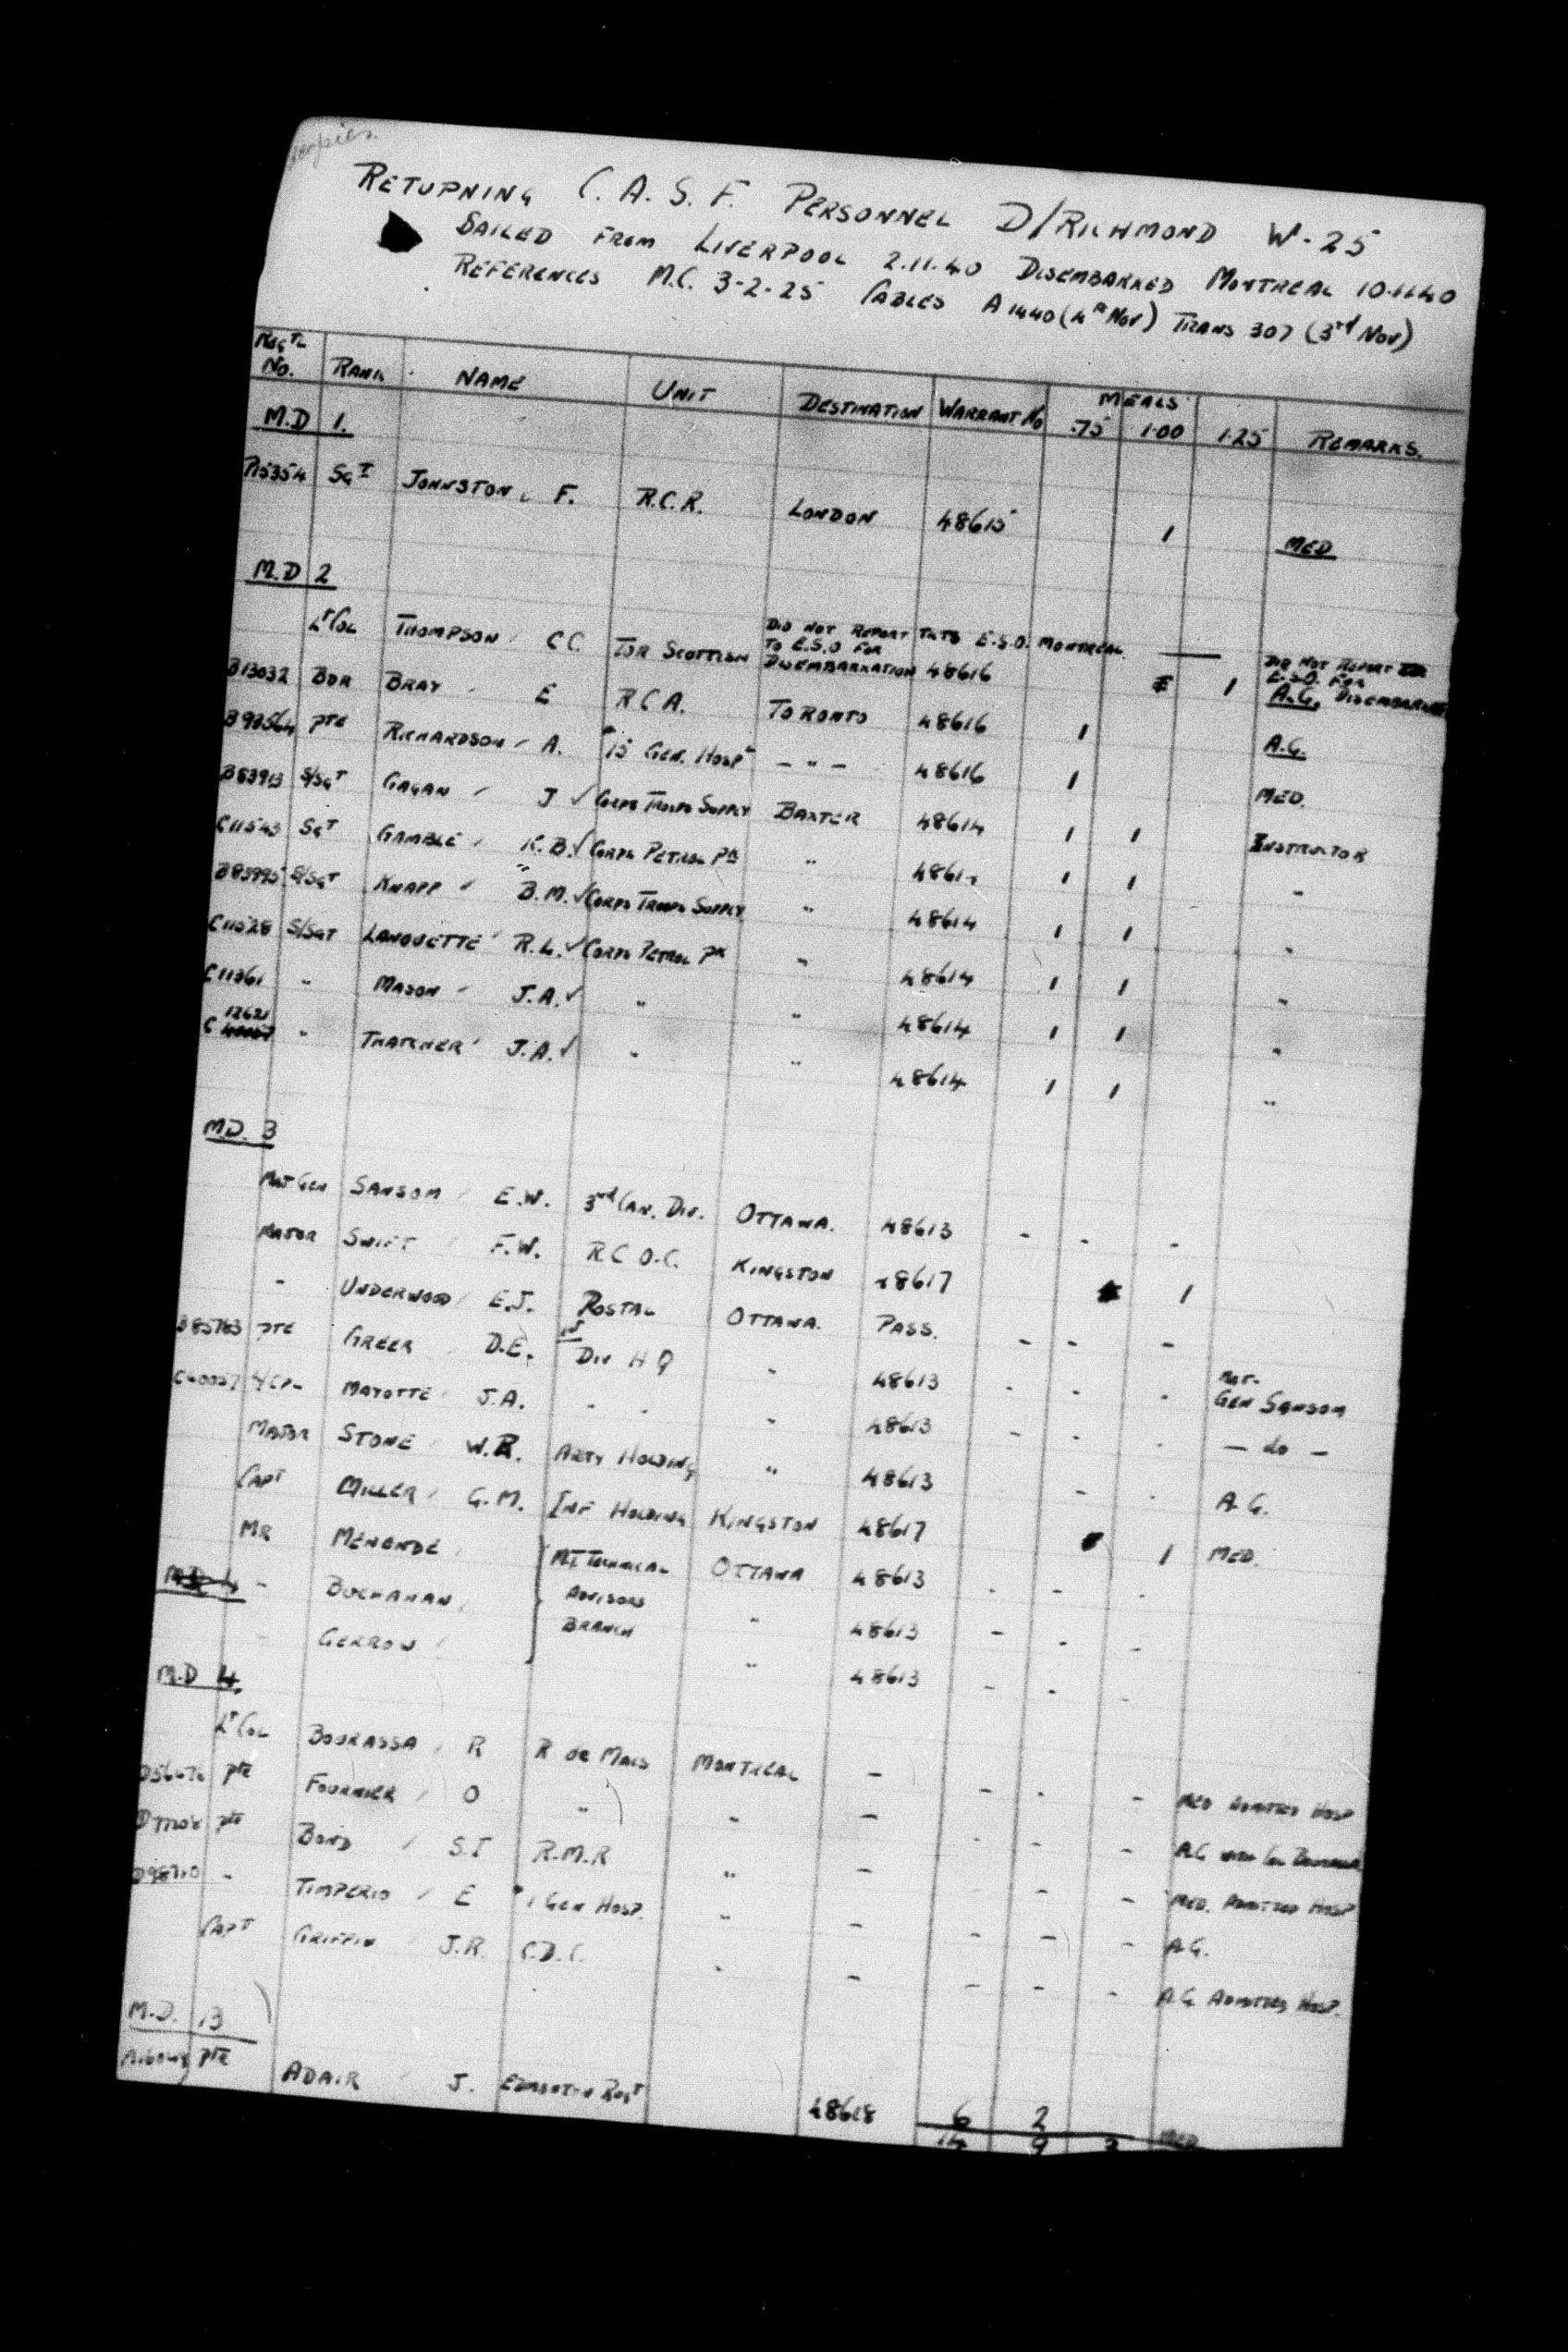 RETURNING C.A.S.F. PERSONNEL D/RICHMOND W-25
SAILED FROM LIVERPOOL 2.11.40 DISEMBARKED MONTREAL 10.11.40
REFERENCES M.C. 3-2-25 CABLES A1440 (4th NOV) TRANS 307 (3rd NOV)
REGTL NO. RANK NAME UNIT DESTINATION WARRANT No MEALS .75 1.00 1.25 REMARKS.
M.D 1.
P15354 SGT JOHNSTON, F. R.C.R. LONDON 48615 1 MED
M.D 2
LT COL THOMPSON CC. TOR SCOTTISH DID NOT REPORT TO E.S.O FOR DISEMBARKATION E.S.O. MONTREAL 48616 1 DID NOT REPORT E.S.O. FOR A.G.
B13032 BDR BRAY E RCA. TORONTO 48616 1 A.G.
PTE RICHARDSON A. 15 GEN. HOSP - " - 48616 1 MED.
B83913 S/SGT GAGAN J ✓ CORPS TROOPS SUPPLY BAXTER 48614 1 1 INSTRUCTOR
C11543 SGT GAMBLE K.B. ✓ CORPS PETROL PK " 48614 1 1 "
B83995 S/SGT KNAPP B.M. ✓ CORPS TROOPS SUPPLY " 48614 1 1 "
C11528 S/SGT LANOUETTE R.L. ✓ CORPS PETROL PK " 48614 1 1 "
C11361 " MASON J.A. ✓ " " 48614 1 1 "
C 12621 " THATCHER J.A. ✓ " " 48614 1 1 "
M.D. 3
MAJ GEN SANSOM E.W. 3rd CAN. DIV. OTTAWA. 48613 - - -
MAJOR SWIFT F.W. RCOC. KINGSTON 48617 1
" UNDERWOOD E.J. POSTAL OTTAWA. PASS. - - -
B85783 PTE GREER D.E. DIV HQ " 48613 - - - MAJ- GEN SANSOM
C40057 L/CPL MAYOTTE J.A. " " " 48613 - - - — do —
MAJOR STONE W.R. ARTY HOLDING " 48613 - - A.G.
CAPT MILLER G.M. INF HOLDING KINGSTON 48617 1 MED.
MR MENENDE M.T. TECHNICAL OTTAWA 48613 - - -
" BUCHANAN ADVISORS BRANCH " 48613 - - -
" GERROW " 48613 - - -
M.D 4.
LT COL BOURASSA R R de MAIS MONTREAL - - - - MED ADMITTED HOSP
PTE FOURNIER O " " - - - - A.G.
PTE BOND S.I R.M.R " - - - MED. ADMITTED HOSP
" TIMPERIO E 1 GEN HOSP. " - - - - A.G.
CAPT GRIFFIN J.R. C.D.C. " - - - - A.G. ADMITTED HOSP.
M.D. 13
PTE ADAIR J. EDMONTON REGT 48618 6 2 MED
14 9 3